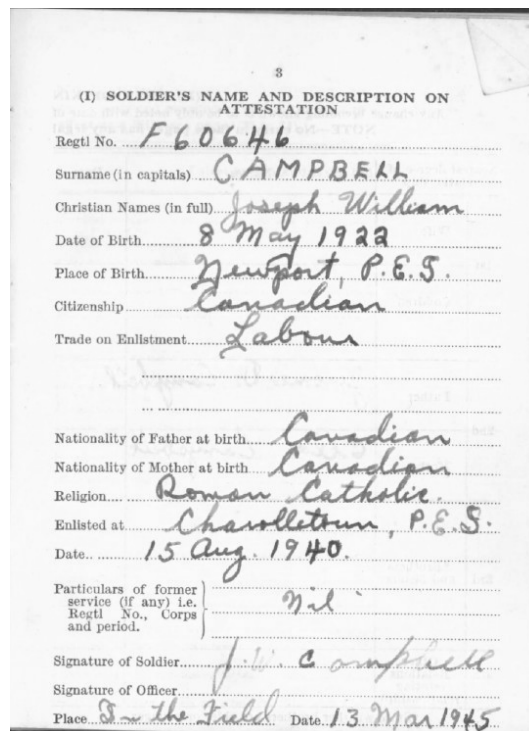 3
(I) SOLDIER'S NAME AND DESCRIPTION ON
ATTESTATION
Regtl No. F60646
Surname (in capitals) CAMPBELL
Christian Names (in full) Joseph William
Date of Birth 8 May 1922
Place of Birth Newport, P.E.I.
Citizenship Canadian
Trade on Enlistment Labour
Nationality of Father at birth Canadian
Nationality of Mother at birth Canadian
Religion Roman Catholic.
Enlisted at Charolletoun, P.E.I.
Date 15 Aug. 1940.
Particulars of former
service (if any) i.e.
Regtl No., Corps
and period. Nil
Signature of Soldier J. W. Campbell
Signature of Officer
Place In the Field Date 13 Mar 1945